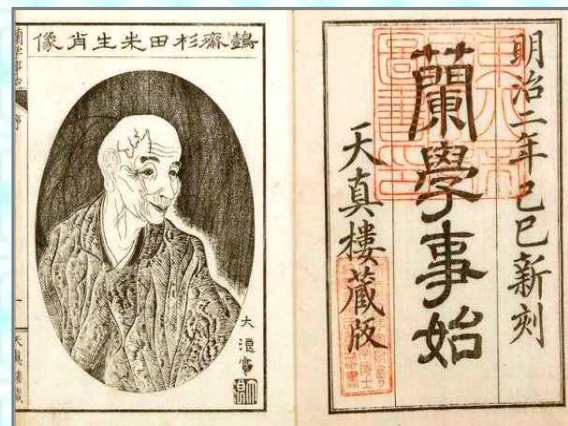 明治二年己巳新刻
蘭學事始
天真樓蔵版
鷧齋杉田先生肖像
大浪